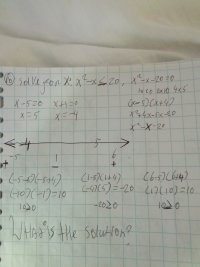 6) Solve for x: x²-x≤20, x²-x-20=0
(x-5)(x+4)
x-5=0 x+4=0
x=5 x=-4
x²+4x-5x-20
x²-x-20
-4 5
-5 1 6
+ - +
(-5-5)(-5+4) (1-5)(1+4) (6-5)(6+4)
(-10)(-1)=10 (-4)(5)=-20 (1)(10)=10
10≥0 -20≥0 10≥0
What is the solution?